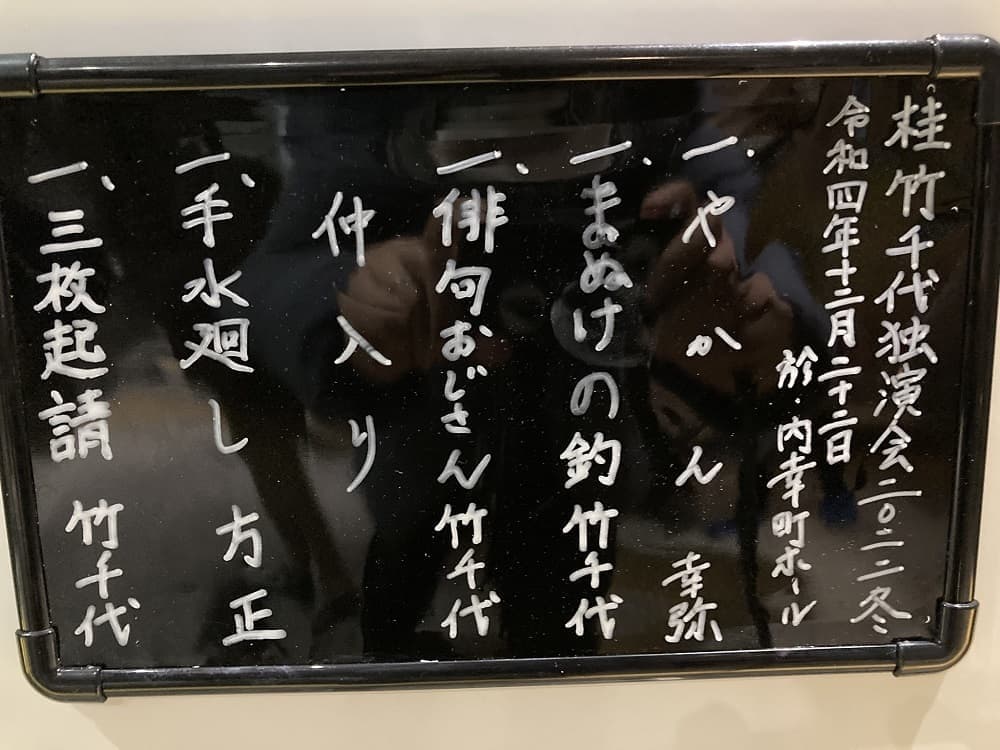 桂竹千代独演会二〇二二冬
令和四年十二月二十二日
於・内幸町ホール
一、やかん 幸弥
一、まぬけの釣 竹千代
一、俳句おじさん 竹千代
仲入り
一、手水廻し 方正
一、三枚起請 竹千代